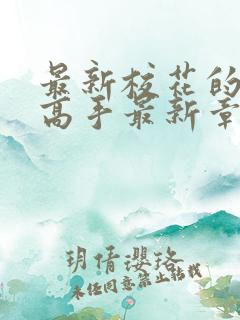 最新校花的
高手最新章
玥倩璎珞
未经同意禁止转载